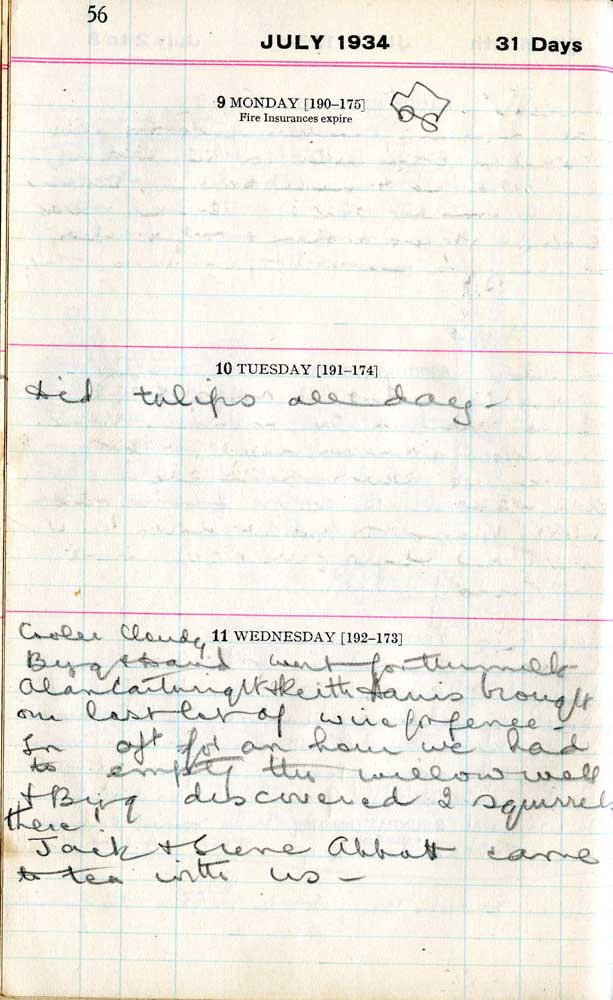 56
JULY 1934 31 Days
9 MONDAY [190–175]
Fire Insurances expire
10 TUESDAY [191–174]
Did tulips all day –
Cooler Cloudy
11 WEDNESDAY [192–173]
went for the milk
Alan Cartwright & Keith Davis brought
our last lot of wire for fence –
In aft for an hour we had
to empty the willow well
& discovered 2 squirrels
there!
Jack & Irene Abbott came
to tea with us –